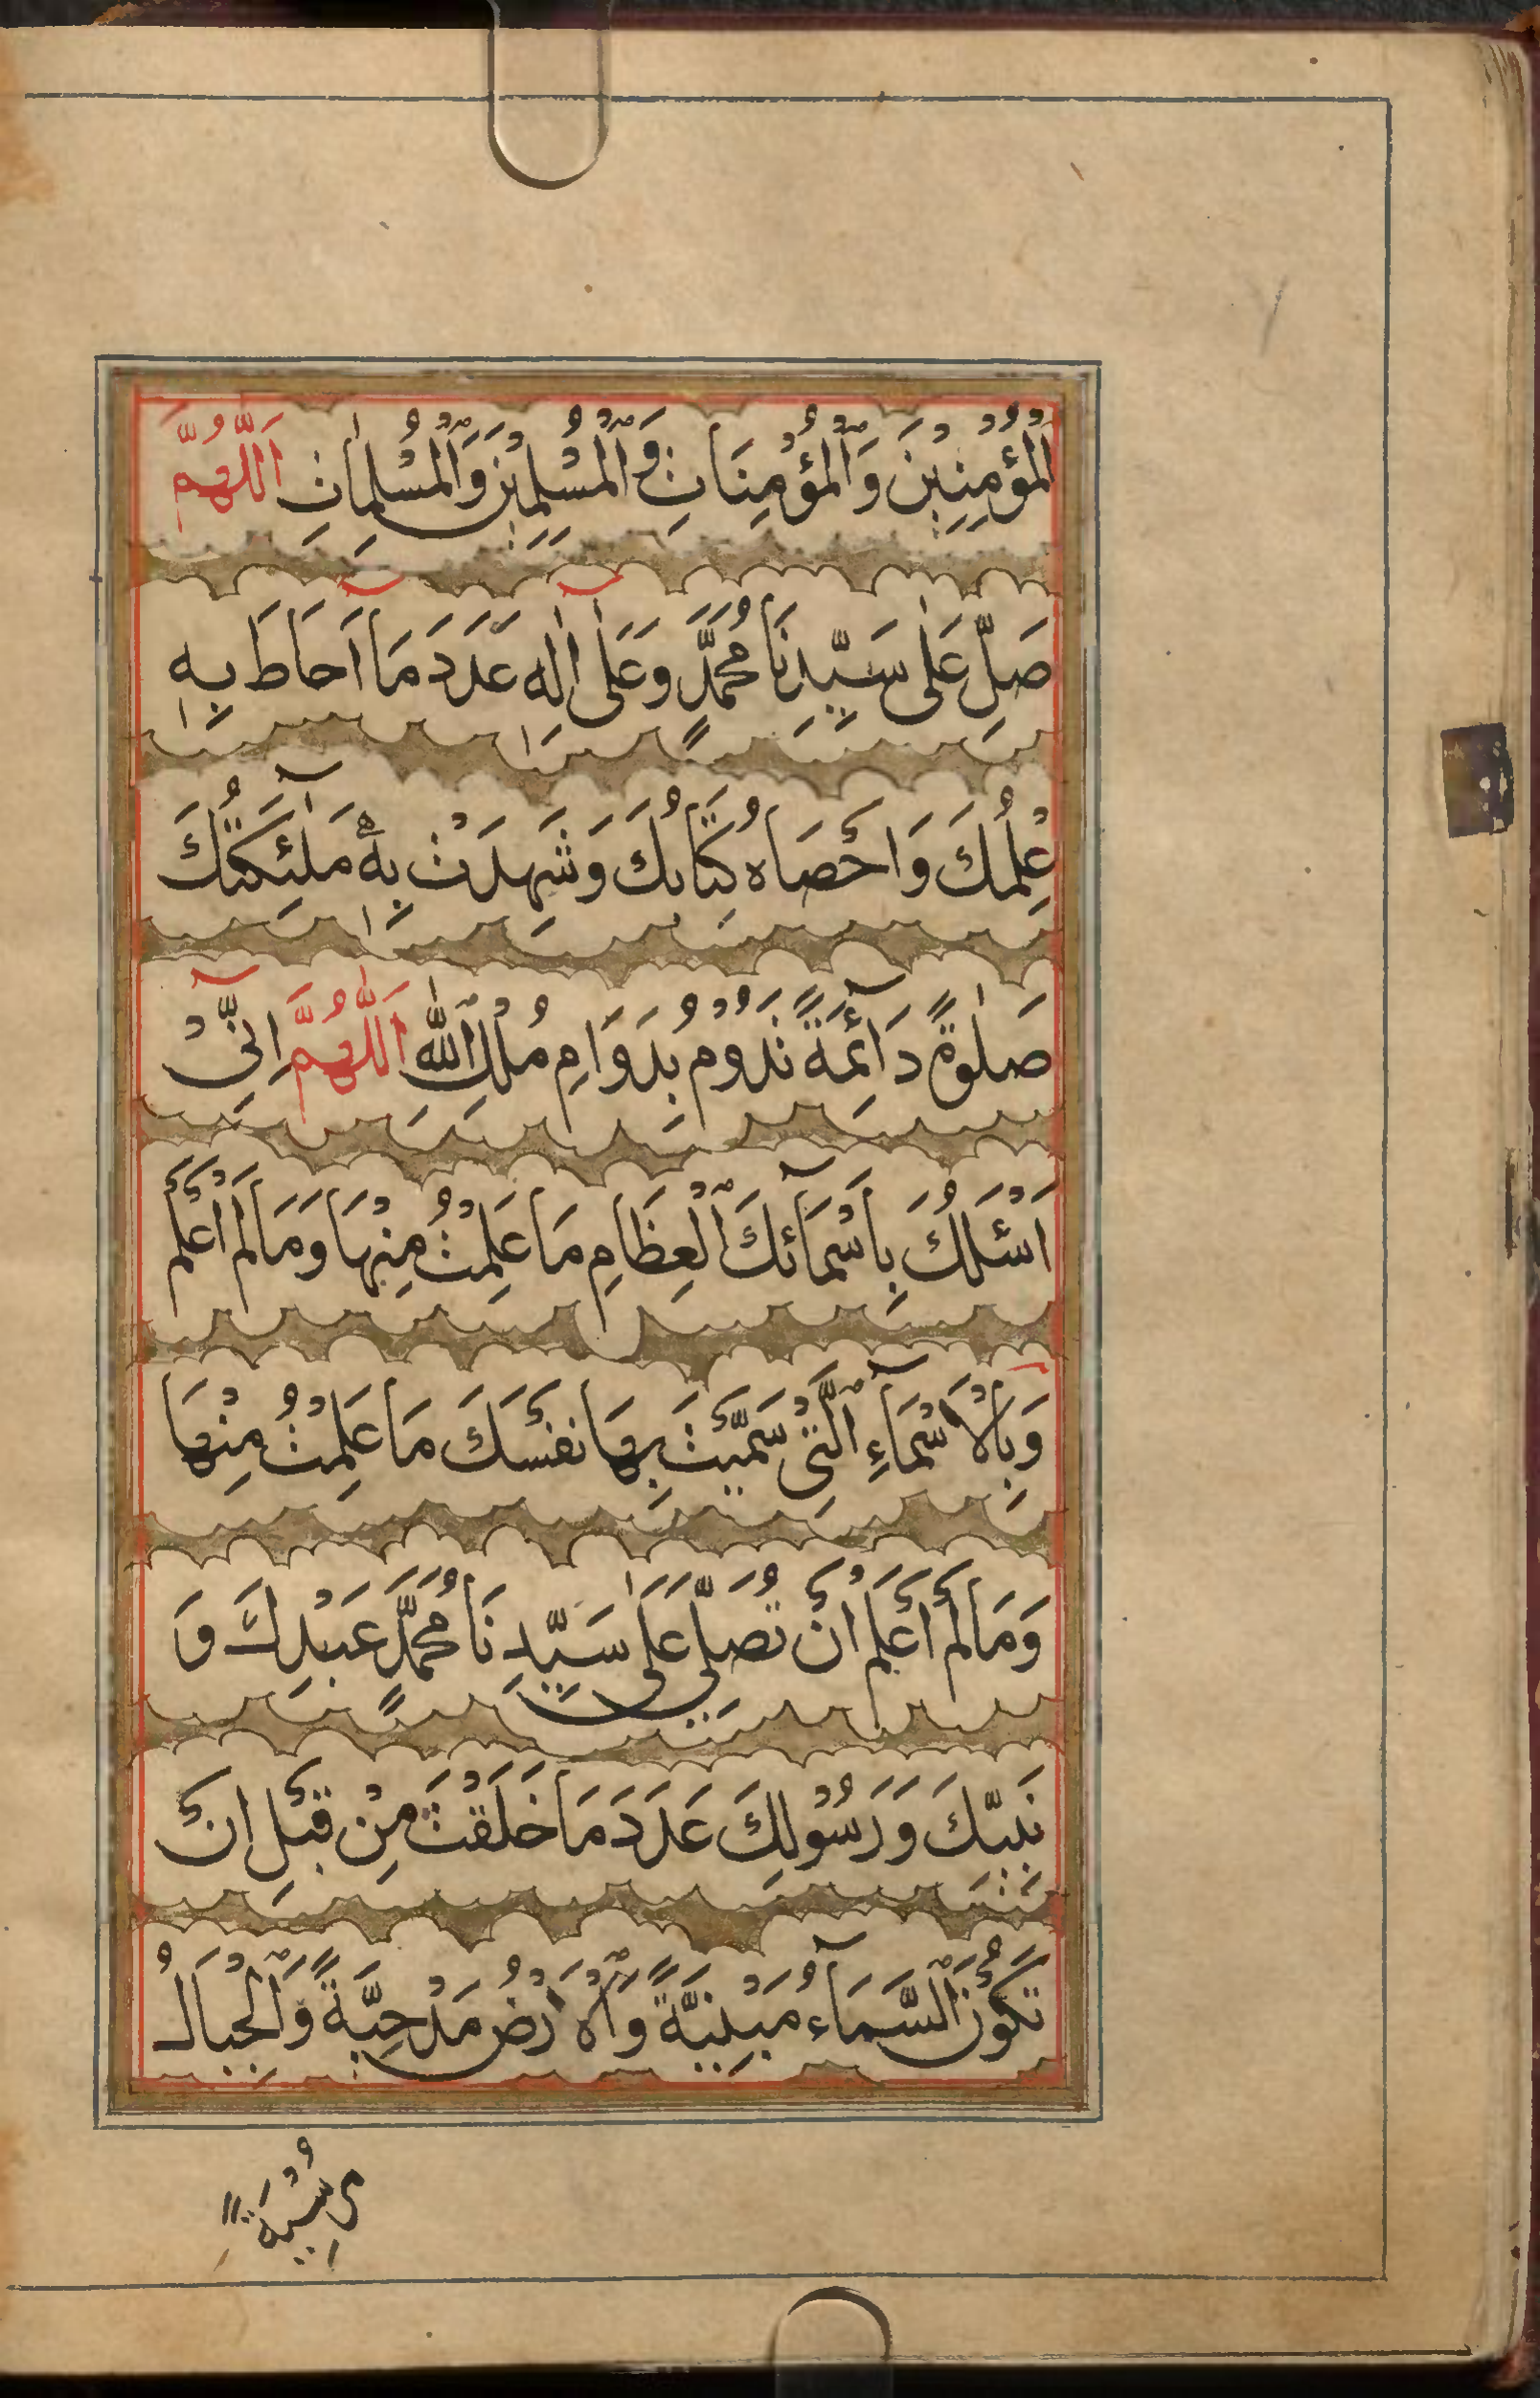 اَلْمُؤْمِنِيْنَ وَالْمُؤْمِنَاتِ وَالْمُسْلِمِيْنَ وَالْمُسْلِمٰاتِ اَللّٰهُمَّ
صَلِّ عَلٰى سَيِّدِنَا مُحَمَّدٍ وَعَلٰىٓ اٰلِهٖ عَدَدَ مَآ اَحَاطَ بِهٖ
عِلْمُكَ وَاَحْصَاهُ كِتَابُكَ وَشَهِدَتْ بِهٖ مَلٰٓئِكَتُكَ
صَلٰوةً دَآئِمَةً تَدُوْمُ بِدَوَامِ مُلْكِ اللّٰهِ اَللّٰهُمَّ اِنِّيْٓ
اَسْئَلُكَ بِاَسْمَآئِكَ الْعِظَامِ مَا عَلِمْتُ مِنْهَا وَمَا لَمْ اَعْلَمْ
وَبِالْاَسْمَآءِ الَّتِيْ سَمَّيْتَ بِهَا نَفْسَكَ مَا عَلِمْتُ مِنْهَا
وَمَا لَمْ اَعْلَمْ اَنْ تُصَلِّيَ عَلٰى سَيِّدِنَا مُحَمَّدٍ عَبْدِكَ وَ
نَبِيِّكَ وَرَسُوْلِكَ عَدَدَ مَا خَلَقْتَ مِنْ قَبْلِ اَنْ
تَكُوْنَ السَّمَآءُ مَبْنِيَّةً وَالْاَرْضُ مَدْحِيَّةً وَالْجِبَالُ
مُرْسِيَةً